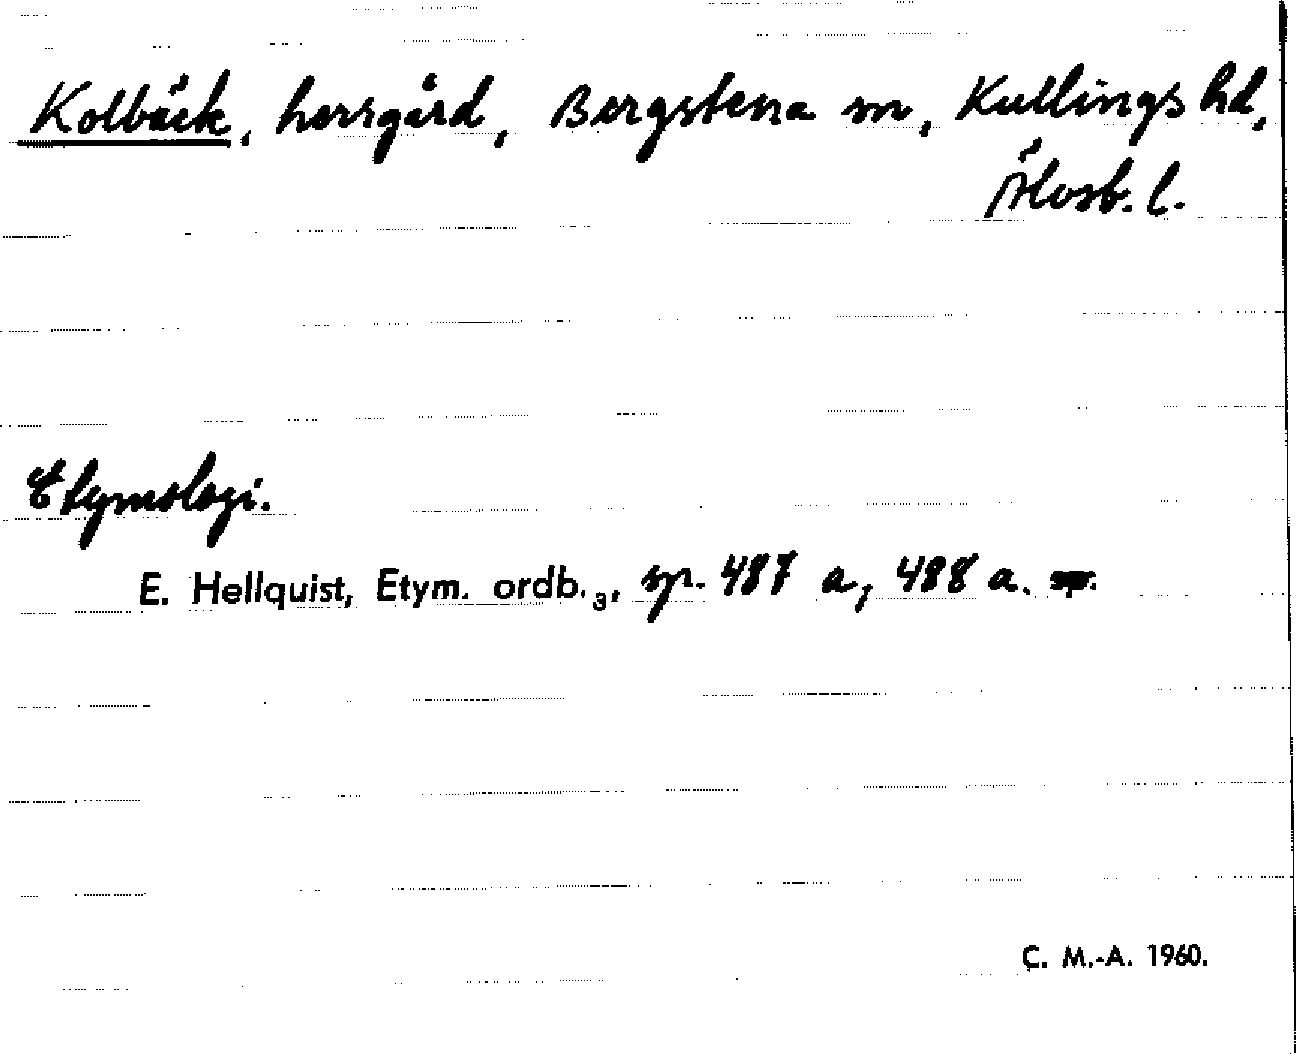 Kolbäck, herrgård, Bergstena sn, Kullings hd,
Älvsb. l.
Etymologi.
E. Hellquist, Etym. ordb.₃, sp. 487 a, 488 a.
C. M.-A. 1960.